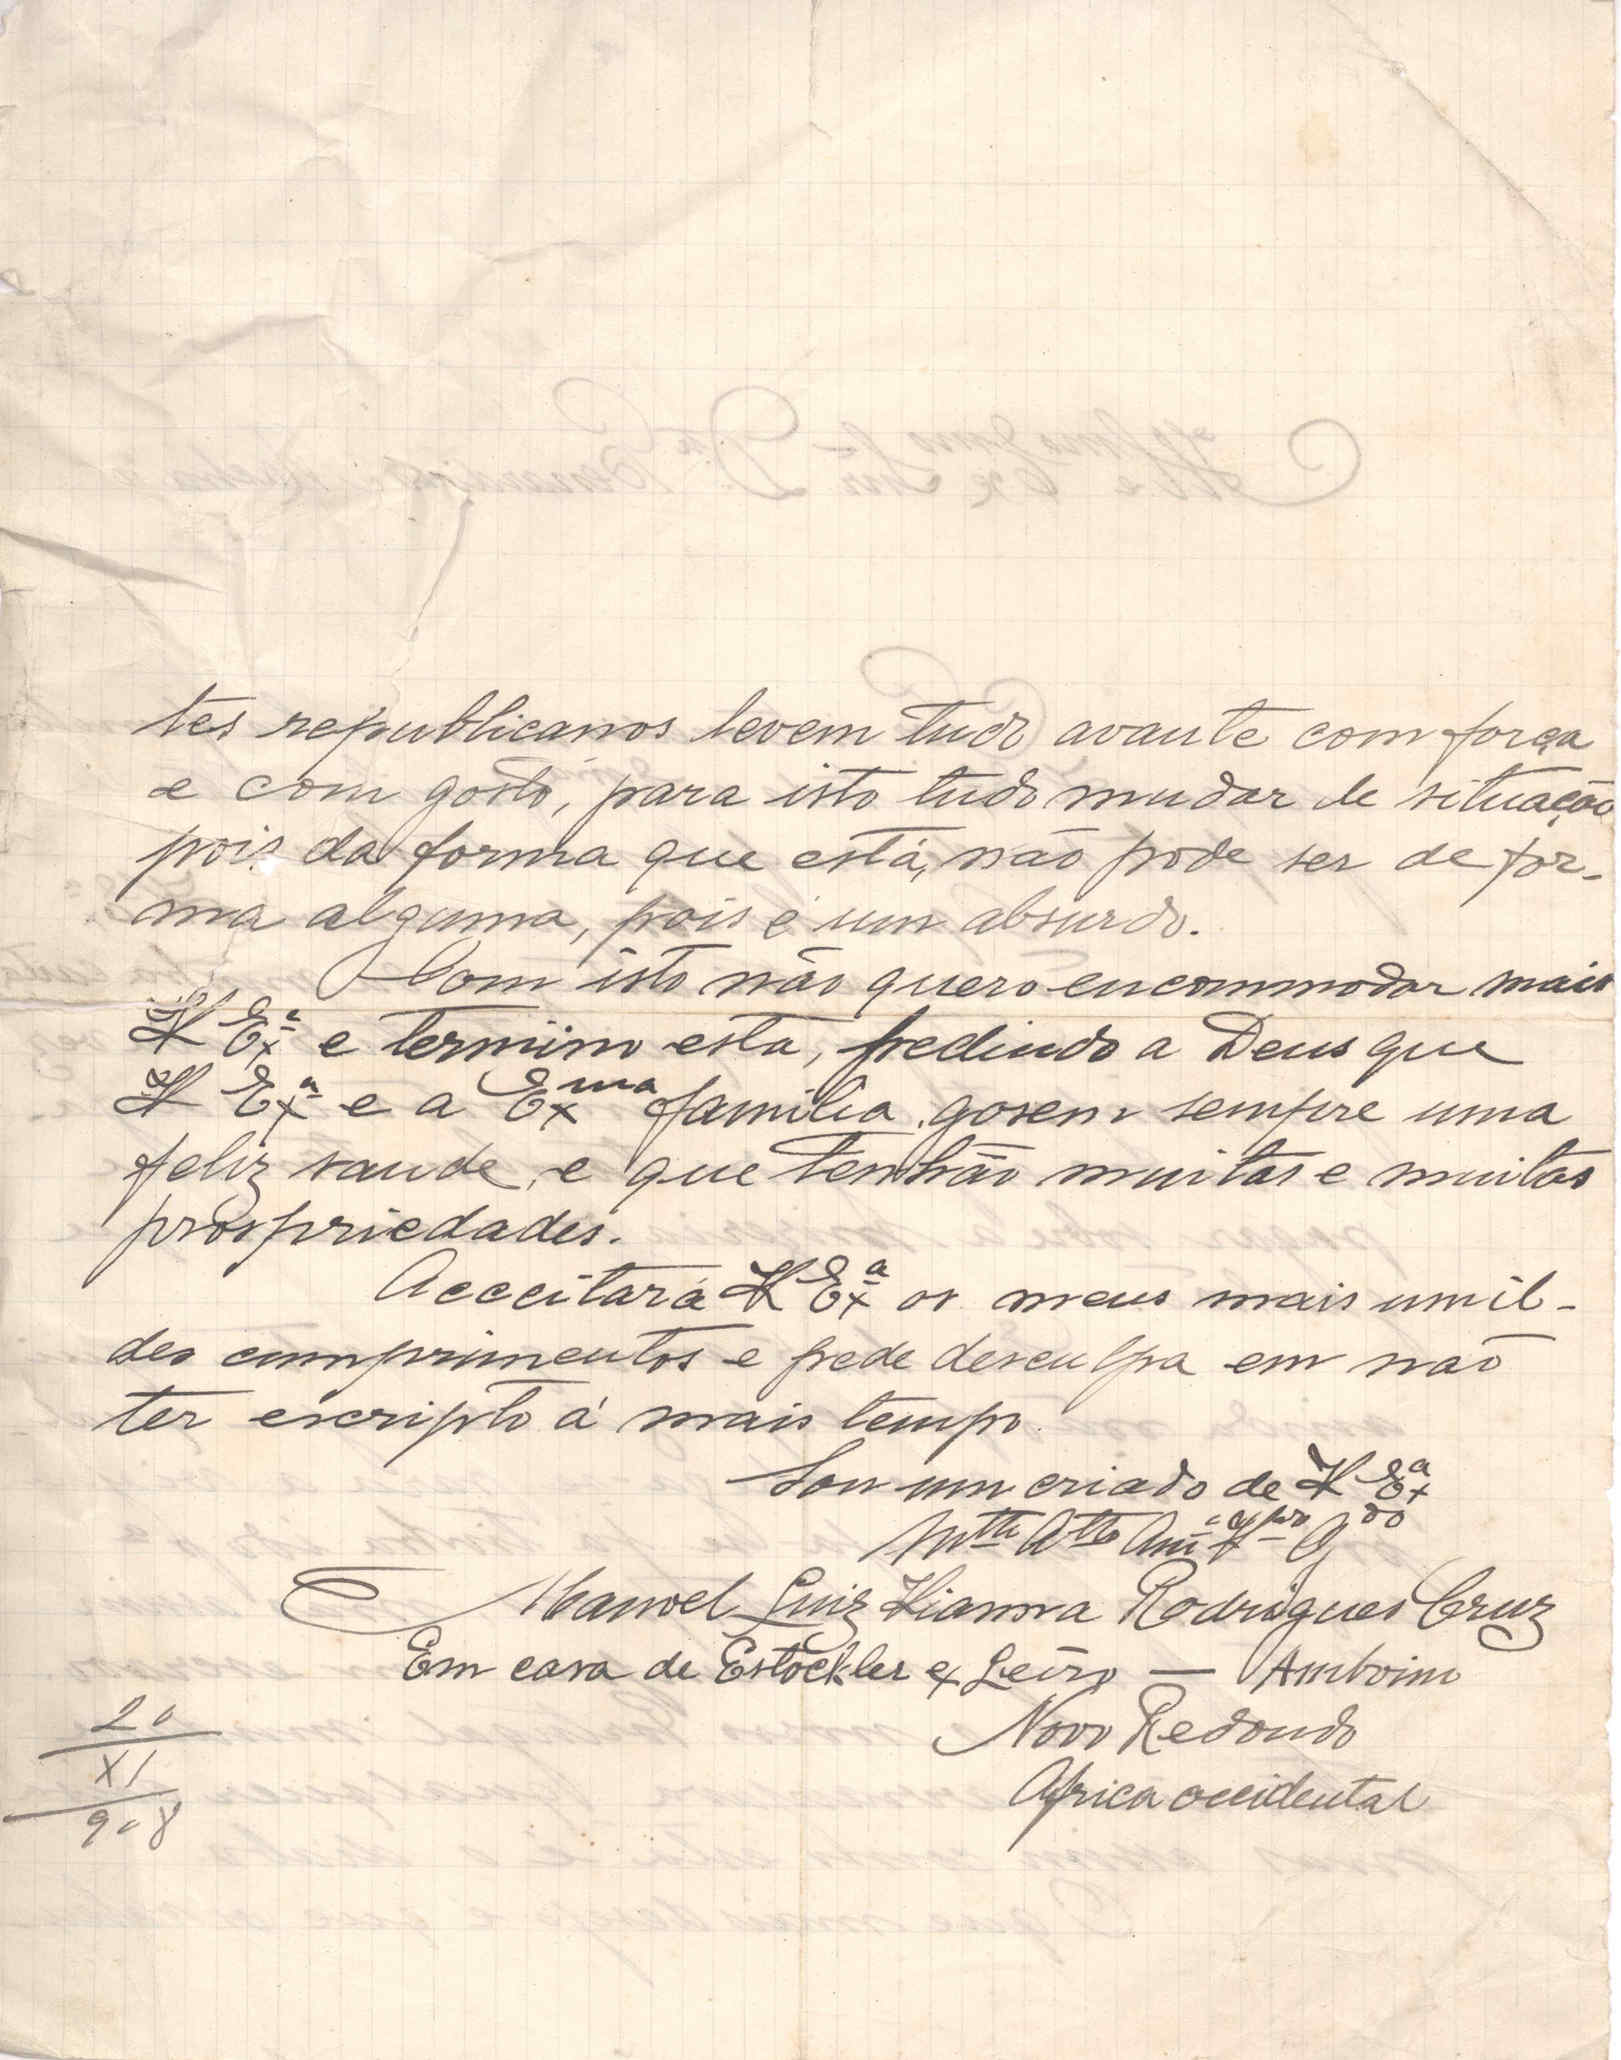 tes republicanos levem tudo avante com força
e com gosto, para isto tudo mudar de situação
pois da forma que está, não pode ser de for-
ma alguma, pois é um absurdo.
Com isto não quero encommodar mais
V Exª e termino esta, pedindo a Deus que
V Exª e a Exma familia, gosem sempre uma
feliz saude, e que tenhão muitas e muitas
prospriedades.
Acceitará V Exª os meus mais umil-
des cumprimentos e pede desculpa em não
ter escripto á mais tempo.
Sou um criado de V Exª
Mtto Atto
Manoel Luiz Vianna Rodrigues Cruz
Em casa de Estockler & Leiro — Amboim
Novo Redondo
Africa occidental
20
XI
908